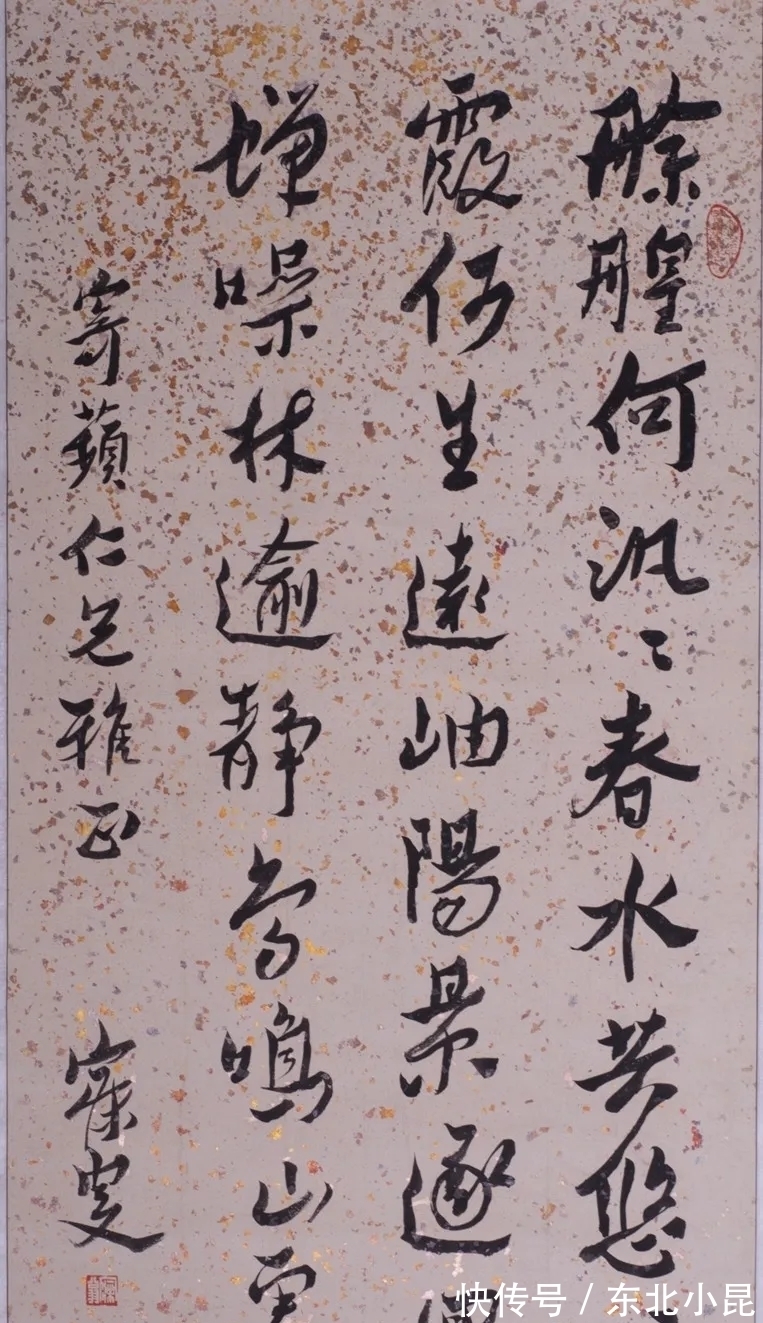 艅艎何汎〻春水共悠
霞何生遠岫陽景逐
蟬噪林逾靜鳥鳴山更
寄蘋仁兄雅正
寐叟
快传号/东北小昆